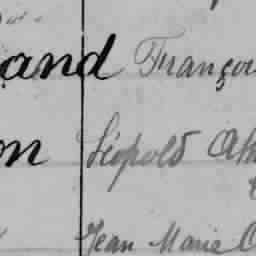 and Françoi
on Léopold
Jean Marie